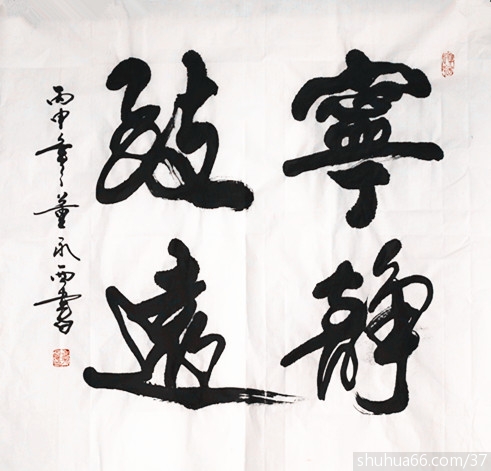 寧靜
致遠
丙申年董永西書
shuhua66.com/37